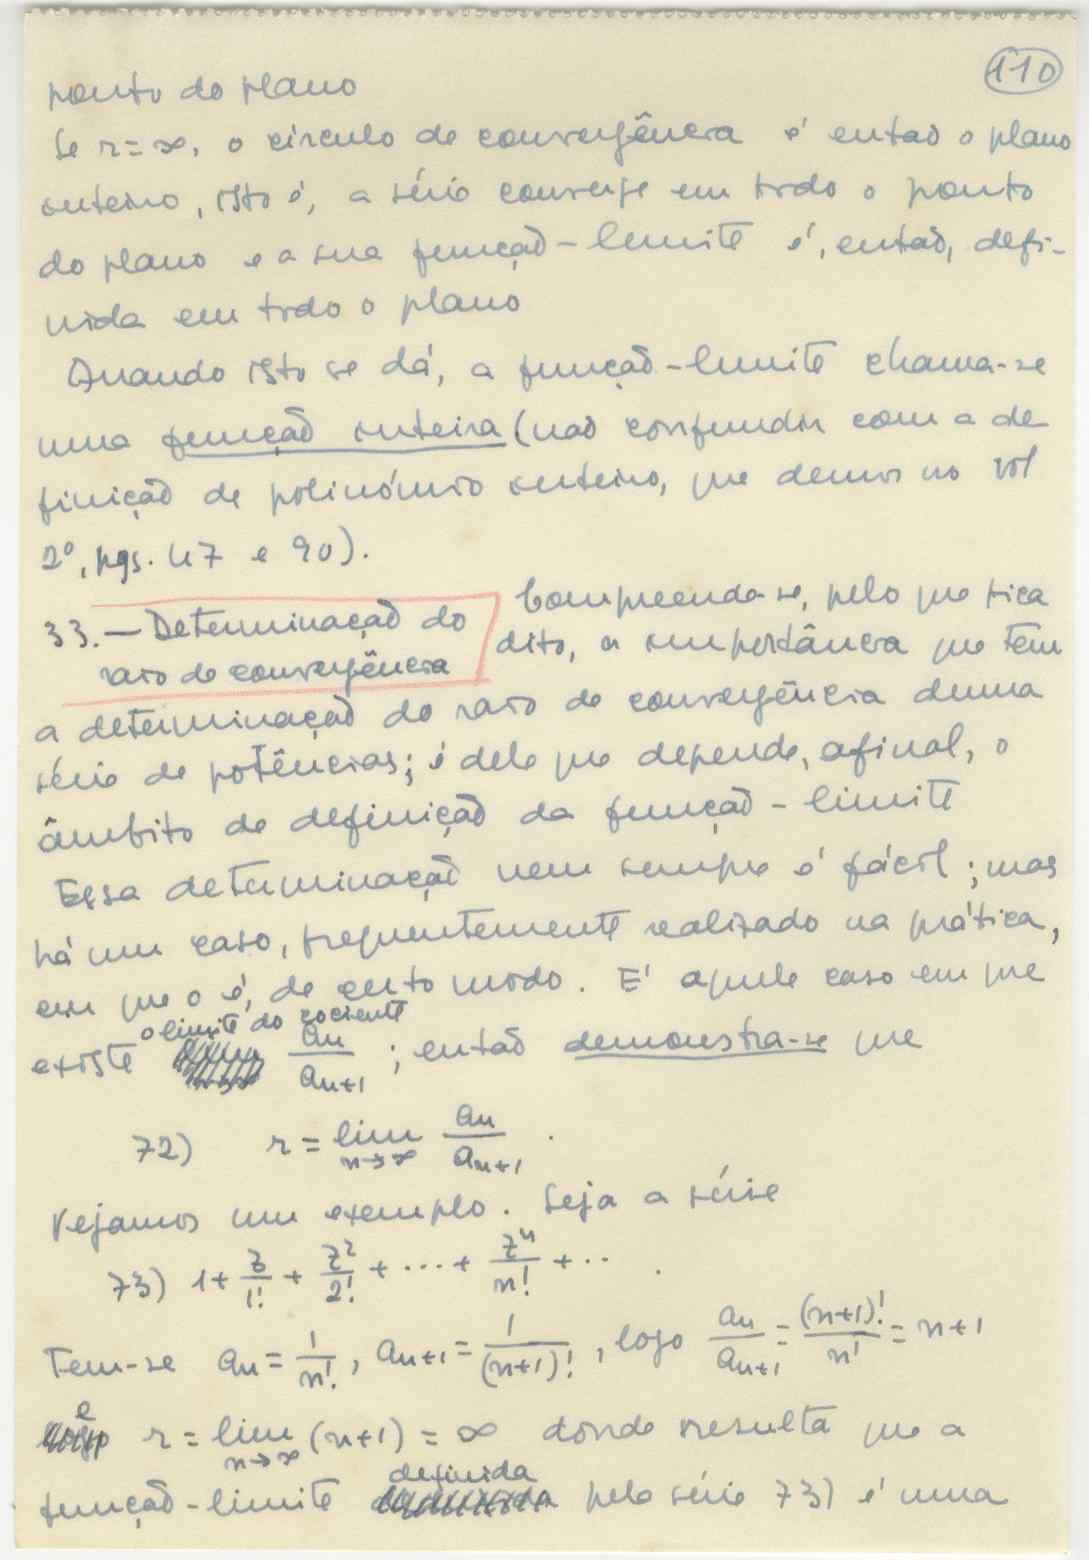 110
ponto do plano
Se r=∞, o círculo de convergência é então o plano
inteiro, isto é, a série converge em todo o ponto
do plano e a sua função-limite é, então, defi-
nida em todo o plano
Quando isto se dá, a função-limite chama-se
uma função inteira (não confundir com a de
finição de polinómio inteiro, que demos no vol
2º, pgs. 47 e 90).
33. — Determinação do
raio de convergência
Compreende-se, pelo que fica
dito, a importância que tem
a determinação do raio de convergência duma
série de potências; é dele que depende, afinal, o
âmbito de definição da função-limite
Essa determinação nem sempre é fácil; mas
há um caso, frequentemente realizado na prática,
em que o é, de certo modo. É aquele caso em que
existe o limite do cociente a_n/a_{n+1} ; então demonstra-se que
72) r = lim_{n→∞} a_n/a_{n+1} .
Vejamos um exemplo. Seja a série
73) 1 + z/1! + z²/2! + ... + zⁿ/n! + ... .
Tem-se a_n = 1/n!, a_{n+1} = 1/(n+1)!, logo a_n/a_{n+1} = (n+1)!/n! = n+1
e r = lim_{n→∞} (n+1) = ∞ donde resulta que a
função-limite definida pela série 73) é uma